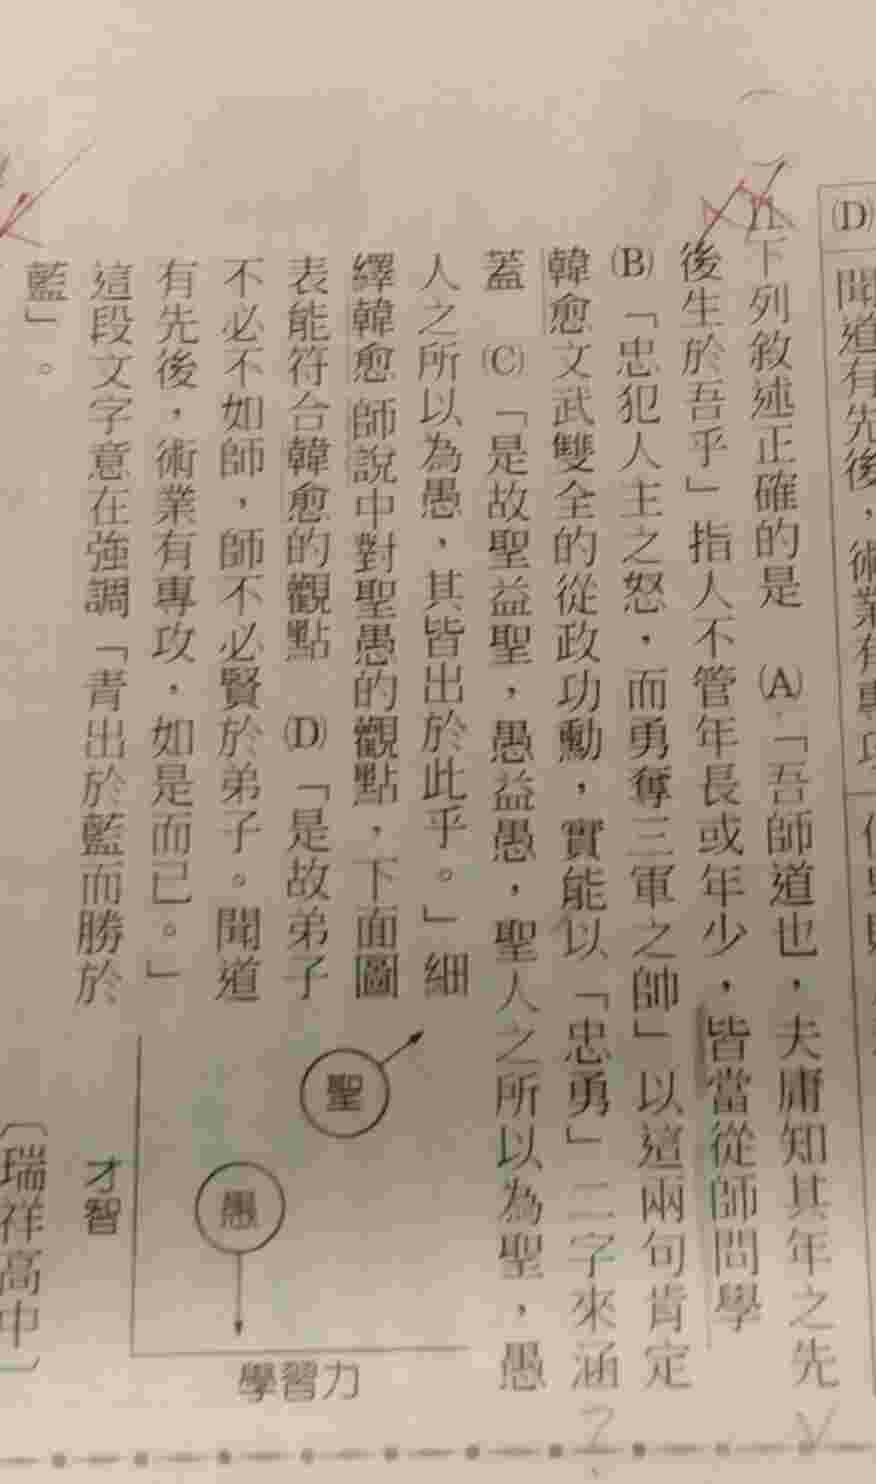 (D)
聞道有先後，術業有專攻
11.下列敘述正確的是　(A)「吾師道也，夫庸知其年之先
後生於吾乎」指人不管年長或年少，皆當從師問學
(B)「忠犯人主之怒，而勇奪三軍之帥」以這兩句肯定
韓愈文武雙全的從政功勳，實能以「忠勇」二字來涵
蓋　(C)「是故聖益聖，愚益愚，聖人之所以為聖，愚
人之所以為愚，其皆出於此乎。」細
繹韓愈師說中對聖愚的觀點，下面圖
表能符合韓愈的觀點　(D)「是故弟子
不必不如師，師不必賢於弟子。聞道
有先後，術業有專攻，如是而已。」
這段文字意在強調「青出於藍而勝於
藍」。
聖
愚
才智
學習力
〔瑞祥高中〕
?